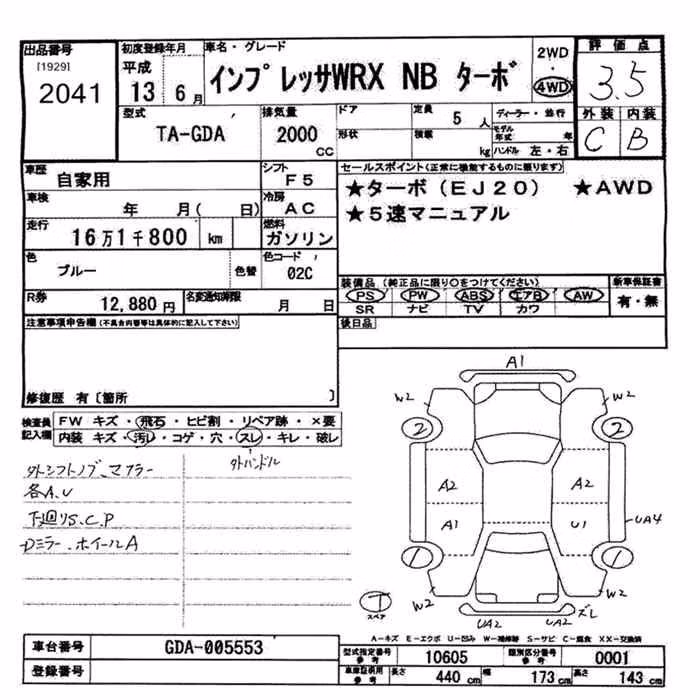 出品番号
[1929]
2041
初度登録年月
平成
13 6 月
車名・グレード
インプレッサWRX NB ターボ
2WD
・
4WD
評価点
3.5
外装 内装
C B
型式
TA-GDA
排気量
2000
CC
ドア
形状
定員 5 人
積載 kg
ディーラー・並行
モデル年式 年
ハンドル 左・右
車歴
自家用
シフト
F5
車検
年 月( 日)
冷房
AC
走行
16万1千800 km
燃料
ガソリン
色
ブルー
色替
色コード
02C
R券
12,880円
名変通知期限
月 日
セールスポイント(正常に機能するものに限ります)
★ターボ(EJ20) ★AWD
★5速マニュアル
装備品(純正品に限り○をつけてください)
PS PW ABS エアB AW
SR ナビ TV カワ
新車保証書
有・無
後日品
注意事項申告欄(不具合内容等は具体的に記入して下さい)
修復歴 有〔箇所 〕
検査員記入欄
FW キズ・飛石・ヒビ割・リペア跡・×要
内装 キズ・汚れ・コゲ・穴・スレ・キレ・破レ
外シフトノブ、マフラー
外ハンドル
各A.U
下廻りS.C.P
Dミラー.ホイールA
A1
W2 W2
2 2
A2 A2
A1 U1
UA4
1 1
W2 W2
T
スペア
UA2 UA2 ズレ
A-キズ E-エクボ U-凹み W-補修跡 S-サビ C-腐食 XX-交換済
車台番号
GDA-005553
登録番号
型式指定番号
参考
10605
類別区分番号
参考
0001
車庫証明用
参考
長さ 440 cm 幅 173 cm 高さ 143 cm